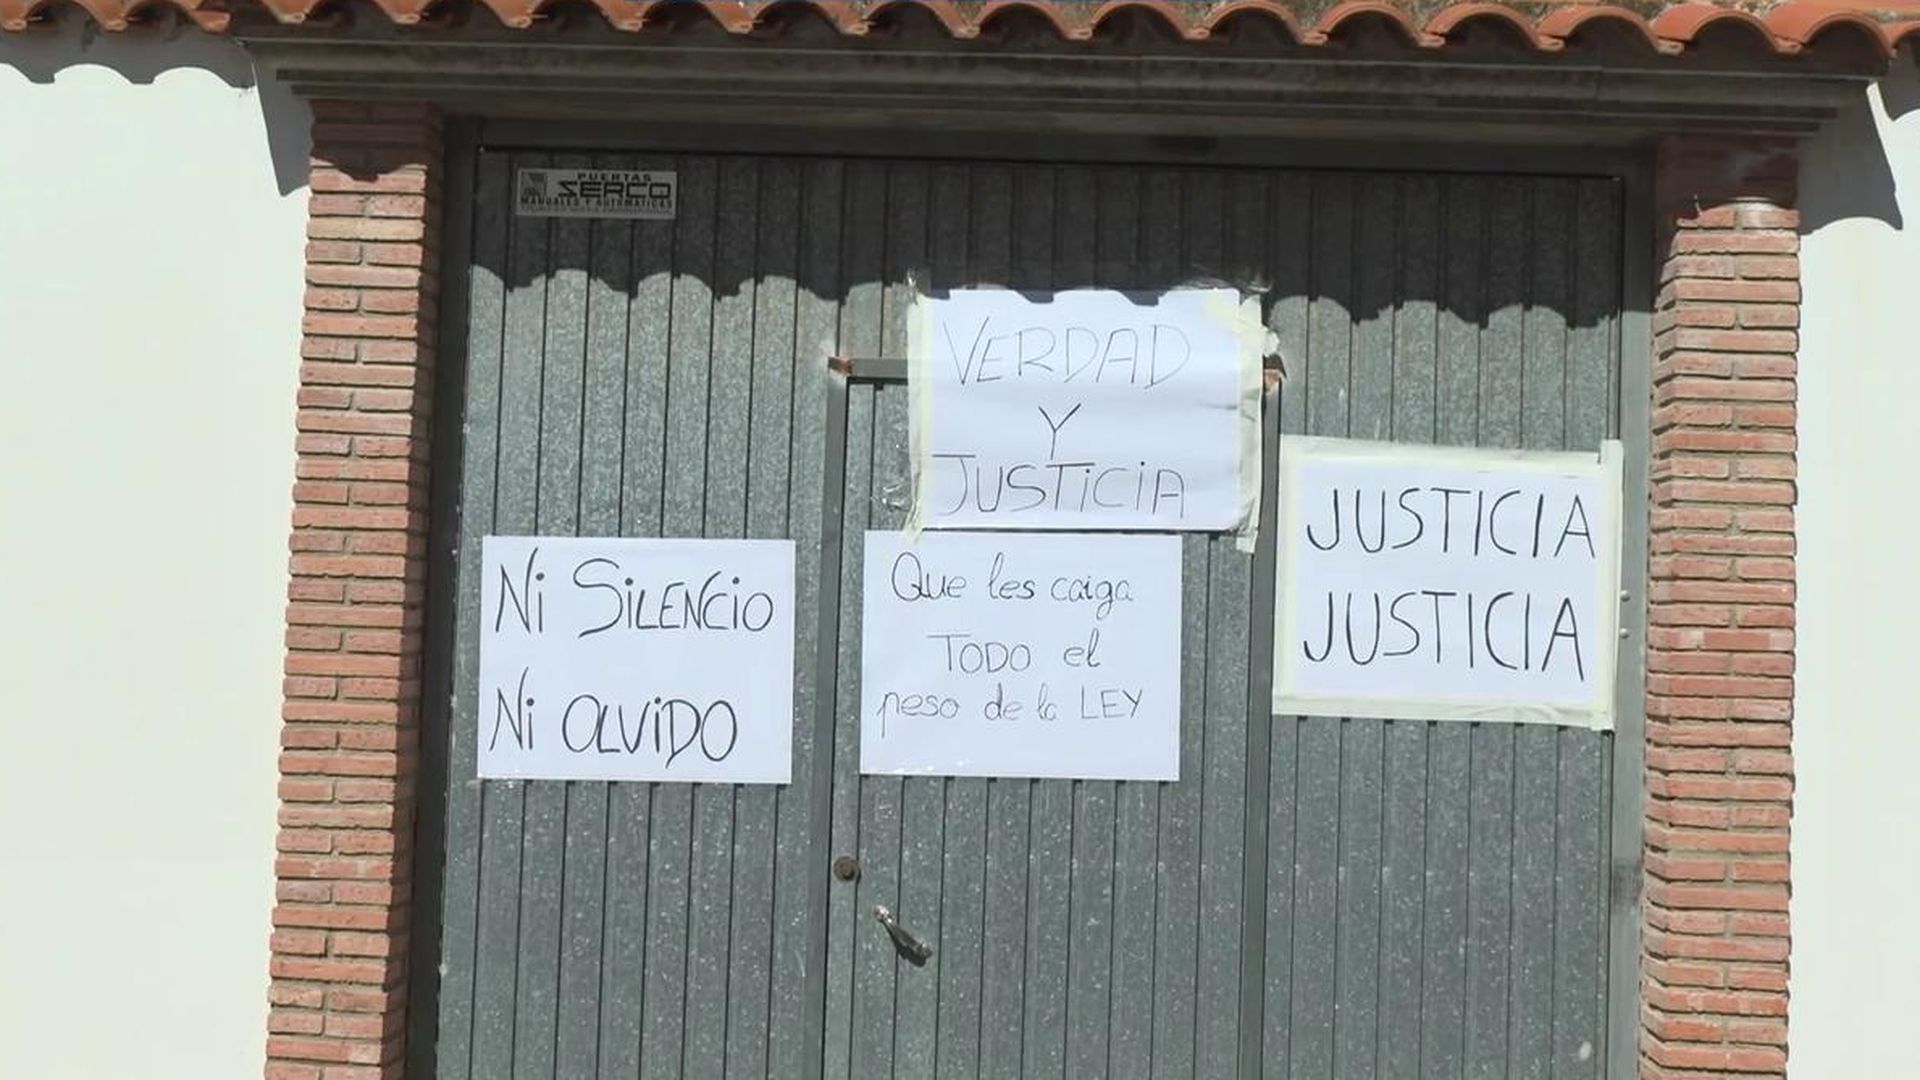 PUERTAS
SERCO
MANUALES Y AUTOMATICAS
VERDAD
Y
JUSTiCiA
Ni SiLENCiO
Ni OLViDO
Que les caiga
TODO el
peso de la LEY
JUSTICIA
JUSTICIA